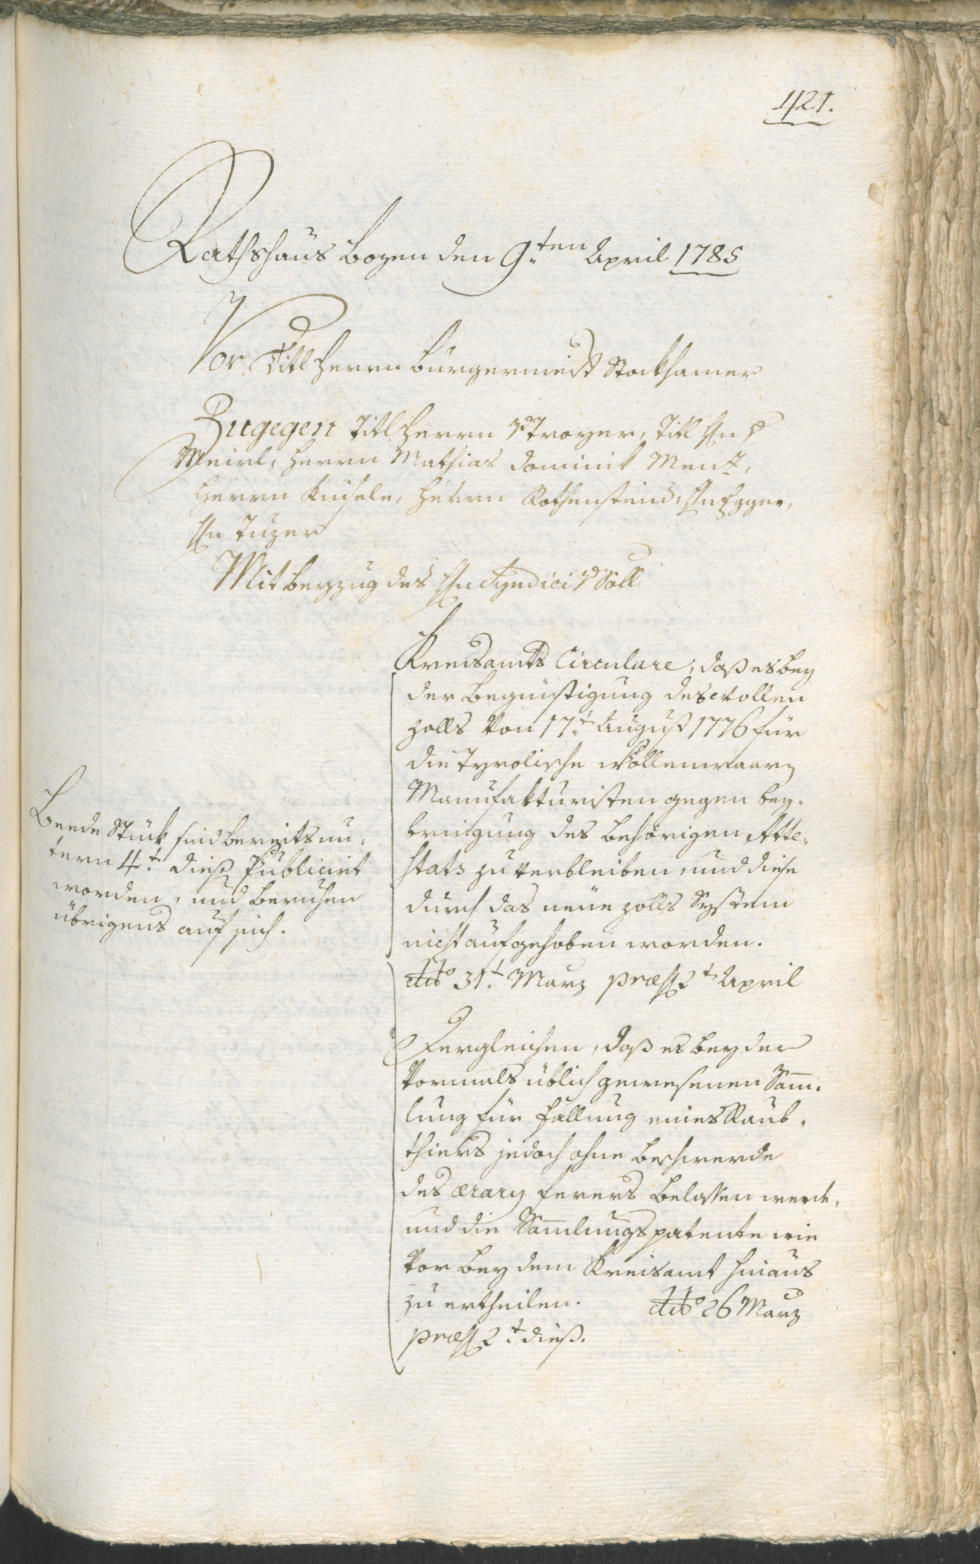 421.
Rathshaus Bozen den 9ten April 1785
Vor Titl Herrn Bürgermeist Stockhamer
Zugegen Titl Herrn v Troyer, Titl Hn
Meirl, Herrn Mathias Dominik Menz,
Herrn Kinsele, Herrn Rothensteiner, Hn Egger,
Hn Tuzer
Mit beyzug des Hn Syndici Dr Söll
Kreisamts Circulare, daß es bey
der begünstigung des Wollen
zolls von 17t August 1776 für
die Tyrolische Wollenwaarn
Manufakturisten gegen bey-
bringung des behörigen Atte-
stats zu verbleiben, und diese
durch das neue zolls System
nicht aufgehoben worden.
ddo 31t Marz præs 2t April
Beede Stück sind bereits un-
term 4t dieß Publicirt
worden, und beruhen
übrigens auf sich.
Dergleichen, daß es bey der
vormals üblich gewesenen Sam̄-
lung für fällung eines Raub-
thiers jedoch ohne beschwerde
des ærary ferners belassen werde,
und die Sam̄lungspatente wie
vor bey dem Kreisamt hinaus
zu ertheilen. ddo 26 Marz
præs 2t dieß.